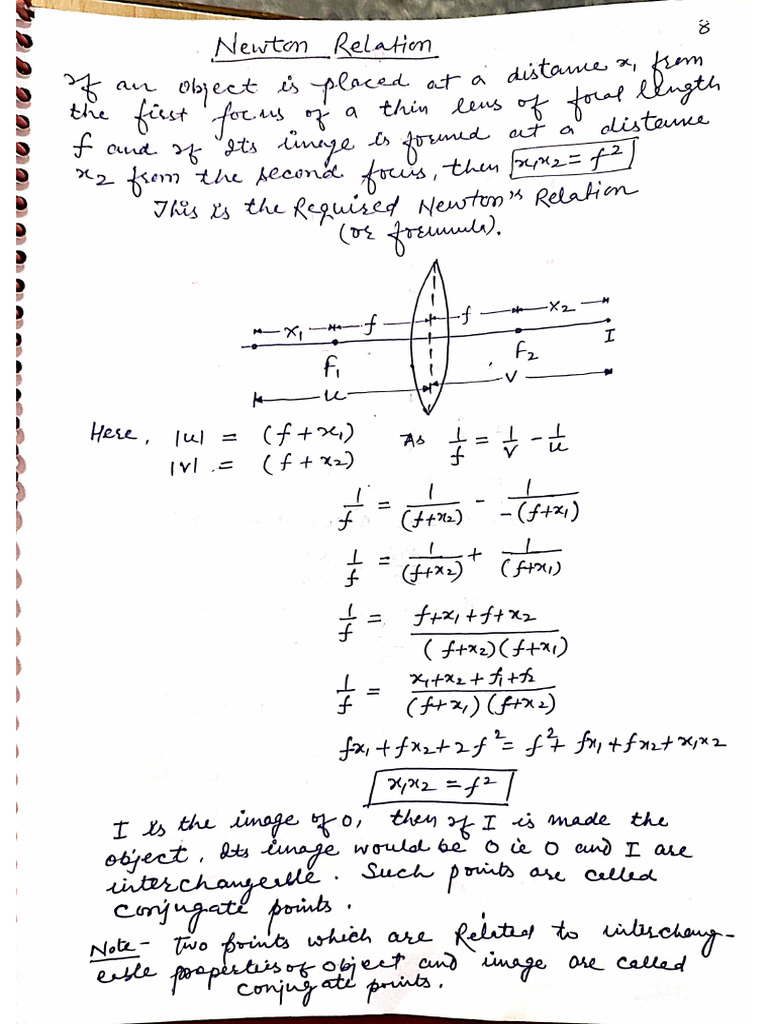 8
Newton Relation
If an object is placed at a distance x₁ from
the first focus of a thin lens of focal length
f and if Its image is formed at a distance
x₂ from the second focus, then x₁x₂ = f²
This is the Required Newton's Relation
(or formula).
x₁ f f x₂
F₁ F₂ I
u v
Here, |u| = (f + x₁) As 1/f = 1/v - 1/u
|v| = (f + x₂)
1/f = 1/(f+x₂) - 1/-(f+x₁)
1/f = 1/(f+x₂) + 1/(f+x₁)
1/f = f+x₁+f+x₂/(f+x₂)(f+x₁)
1/f = x₁+x₂+f₁+f₂/(f+x₁)(f+x₂)
fx₁+fx₂+2f² = f²+fx₁+fx₂+x₁x₂
x₁x₂ = f²
I is the image of O, then if I is made the
object, Its image would be O ie O and I are
interchangeable. Such points are called
Conjugate points.
Note - Two points which are Related to interchang-
eable properties of object and image are called
conjugate points.